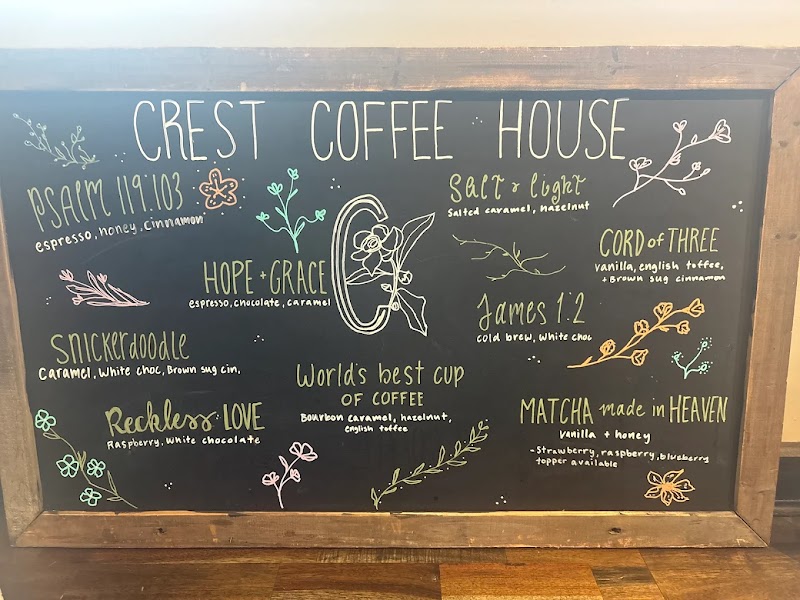 CREST COFFEE HOUSE
PSALM 119:103
espresso, honey, cinnamon
Salt + light
Salted caramel, hazelnut
HOPE + GRACE
espresso, chocolate, caramel
C
CORD of THREE
vanilla, english toffee,
+ Brown sug cinnamon
James 1:2
cold brew, white choc
Snickerdoodle
Caramel, White choc, Brown sug cin.
World's best cup
OF COFFEE
Bourbon caramel, hazelnut,
English toffee
Reckless LOVE
Raspberry, White chocolate
MATCHA made in HEAVEN
vanilla + honey
- Strawberry, raspberry, blueberry
topper available